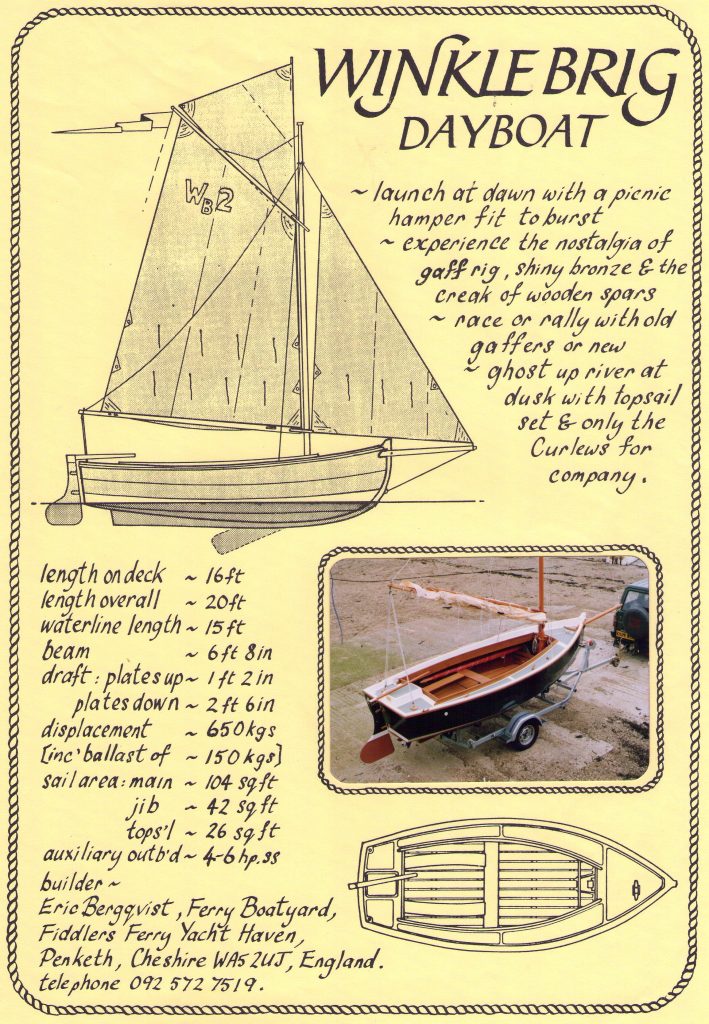 WINKLE BRIG
DAYBOAT
WB2
~ launch at dawn with a picnic
hamper fit to burst
~ experience the nostalgia of
gaff rig, shiny bronze & the
creak of wooden spars
~ race or rally with old
gaffers or new
~ ghost up river at
dusk with topsail
set & only the
Curlews for
company.
length on deck ~ 16ft
length overall ~ 20ft
waterline length ~ 15ft
beam ~ 6ft 8in
draft: plates up ~ 1ft 2in
plates down ~ 2ft 6in
displacement ~ 650kgs
[inc' ballast of ~ 150kgs]
sail area: main ~ 104 sq ft
jib ~ 42 sq ft
tops'l ~ 26 sq ft
auxiliary outb'd ~ 4-6hp.ss
builder ~
Eric Bergqvist, Ferry Boatyard,
Fiddlers Ferry Yacht Haven,
Penketh, Cheshire WA5 2UJ, England.
telephone 092 572 7519.